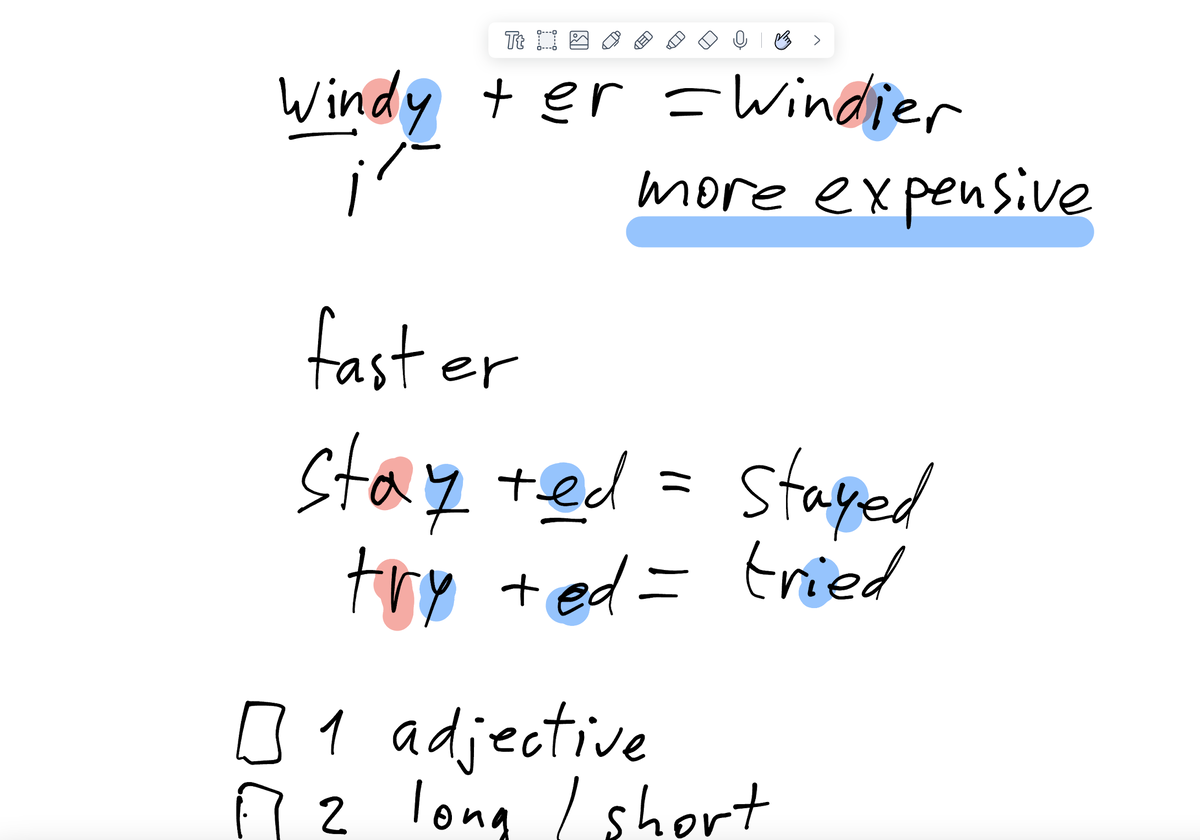 Tt
windy + er = Windier
i
more expensive
faster
stay + ed = stayed
try + ed = tried
1 adjective
2 long / short